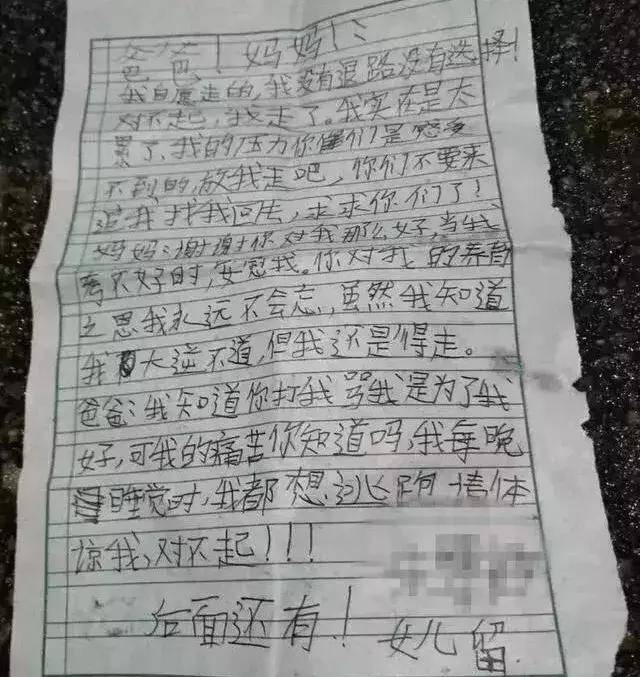 爸爸！妈妈！：
我自愿走的，我没有退路没有选择！
对不起，我走了。我实在是太
累了，我的压力你们是感受
不到的，放我走吧，你们不要来
追我找我回去，求求你们了！
妈妈：谢谢你对我那么好，当我
考不好时，安慰我。你对我的养育
之恩我永远不会忘，虽然我知道
我大逆不道，但我还是得走。
爸爸：我知道你打我骂我是为了我
好，可我的痛苦你知道吗，我每晚
睡觉时，我都想逃跑 请体
谅我，对不起！！！
后面还有！ 女儿 留.